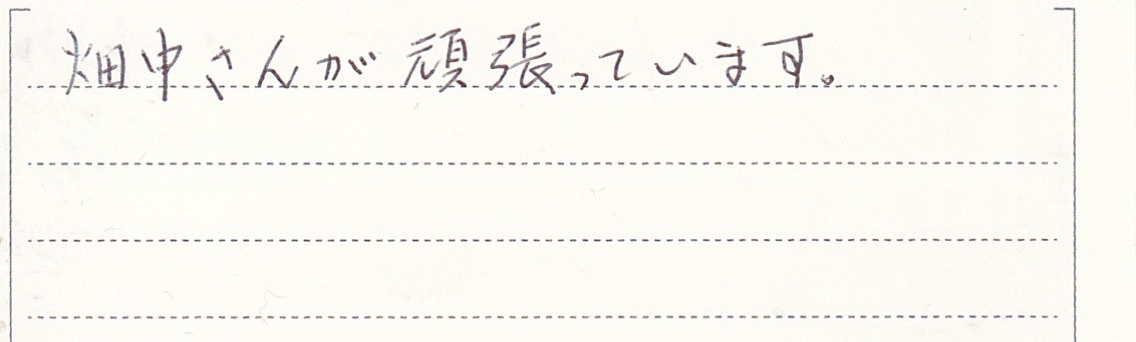 畑中さんが頑張っています。